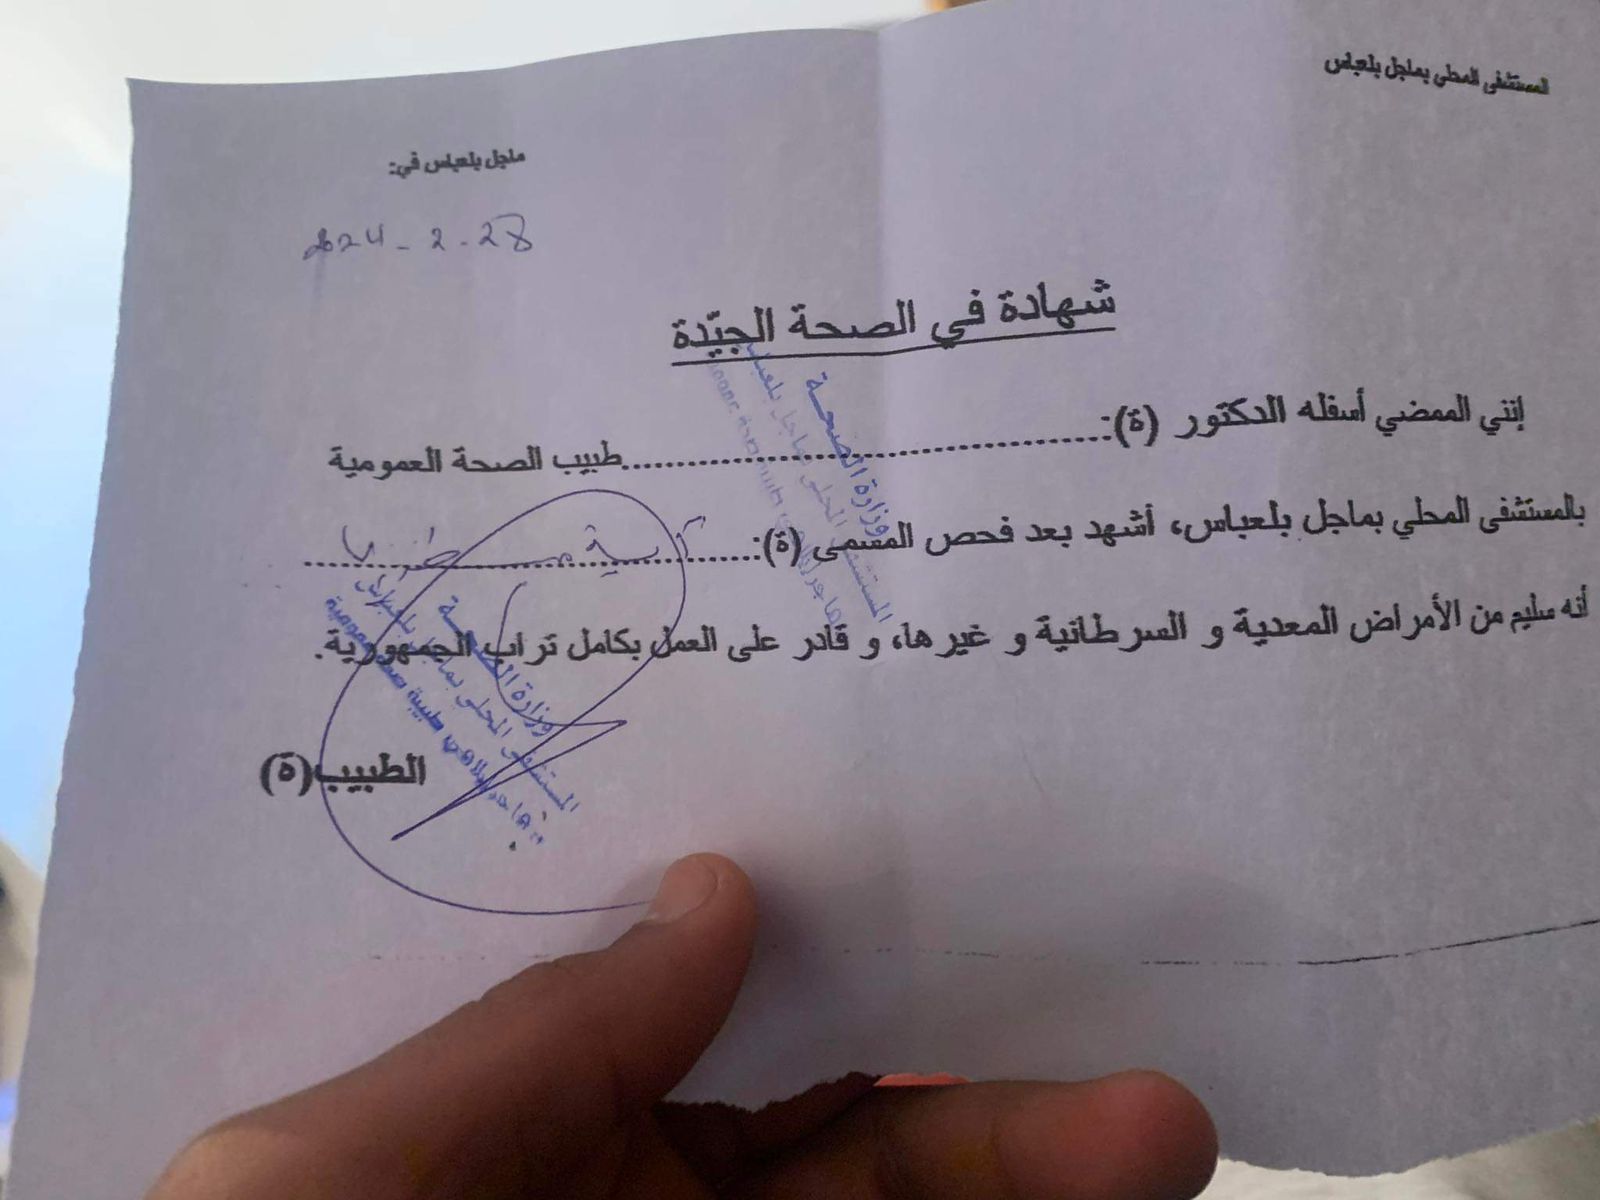 المستشفى المحلي بماجل بلعباس
ماجل بلعباس في:
2024 - 2 - 28
شهادة في الصحة الجيّدة
إنني الممضي أسفله الدكتور (ة):............................................طبيب الصحة العمومية
بالمستشفى المحلي بماجل بلعباس، أشهد بعد فحص المسمى (ة):............................................
أنه سليم من الأمراض المعدية و السرطانية و غيرها، و قادر على العمل بكامل تراب الجمهورية.
وزارة الصحة
المستشفى المحلي بماجل بلعباس
وزارة الصحة
المستشفى المحلي بماجل بلعباس
طبيبة صحة عمومية
الطبيب(ة)